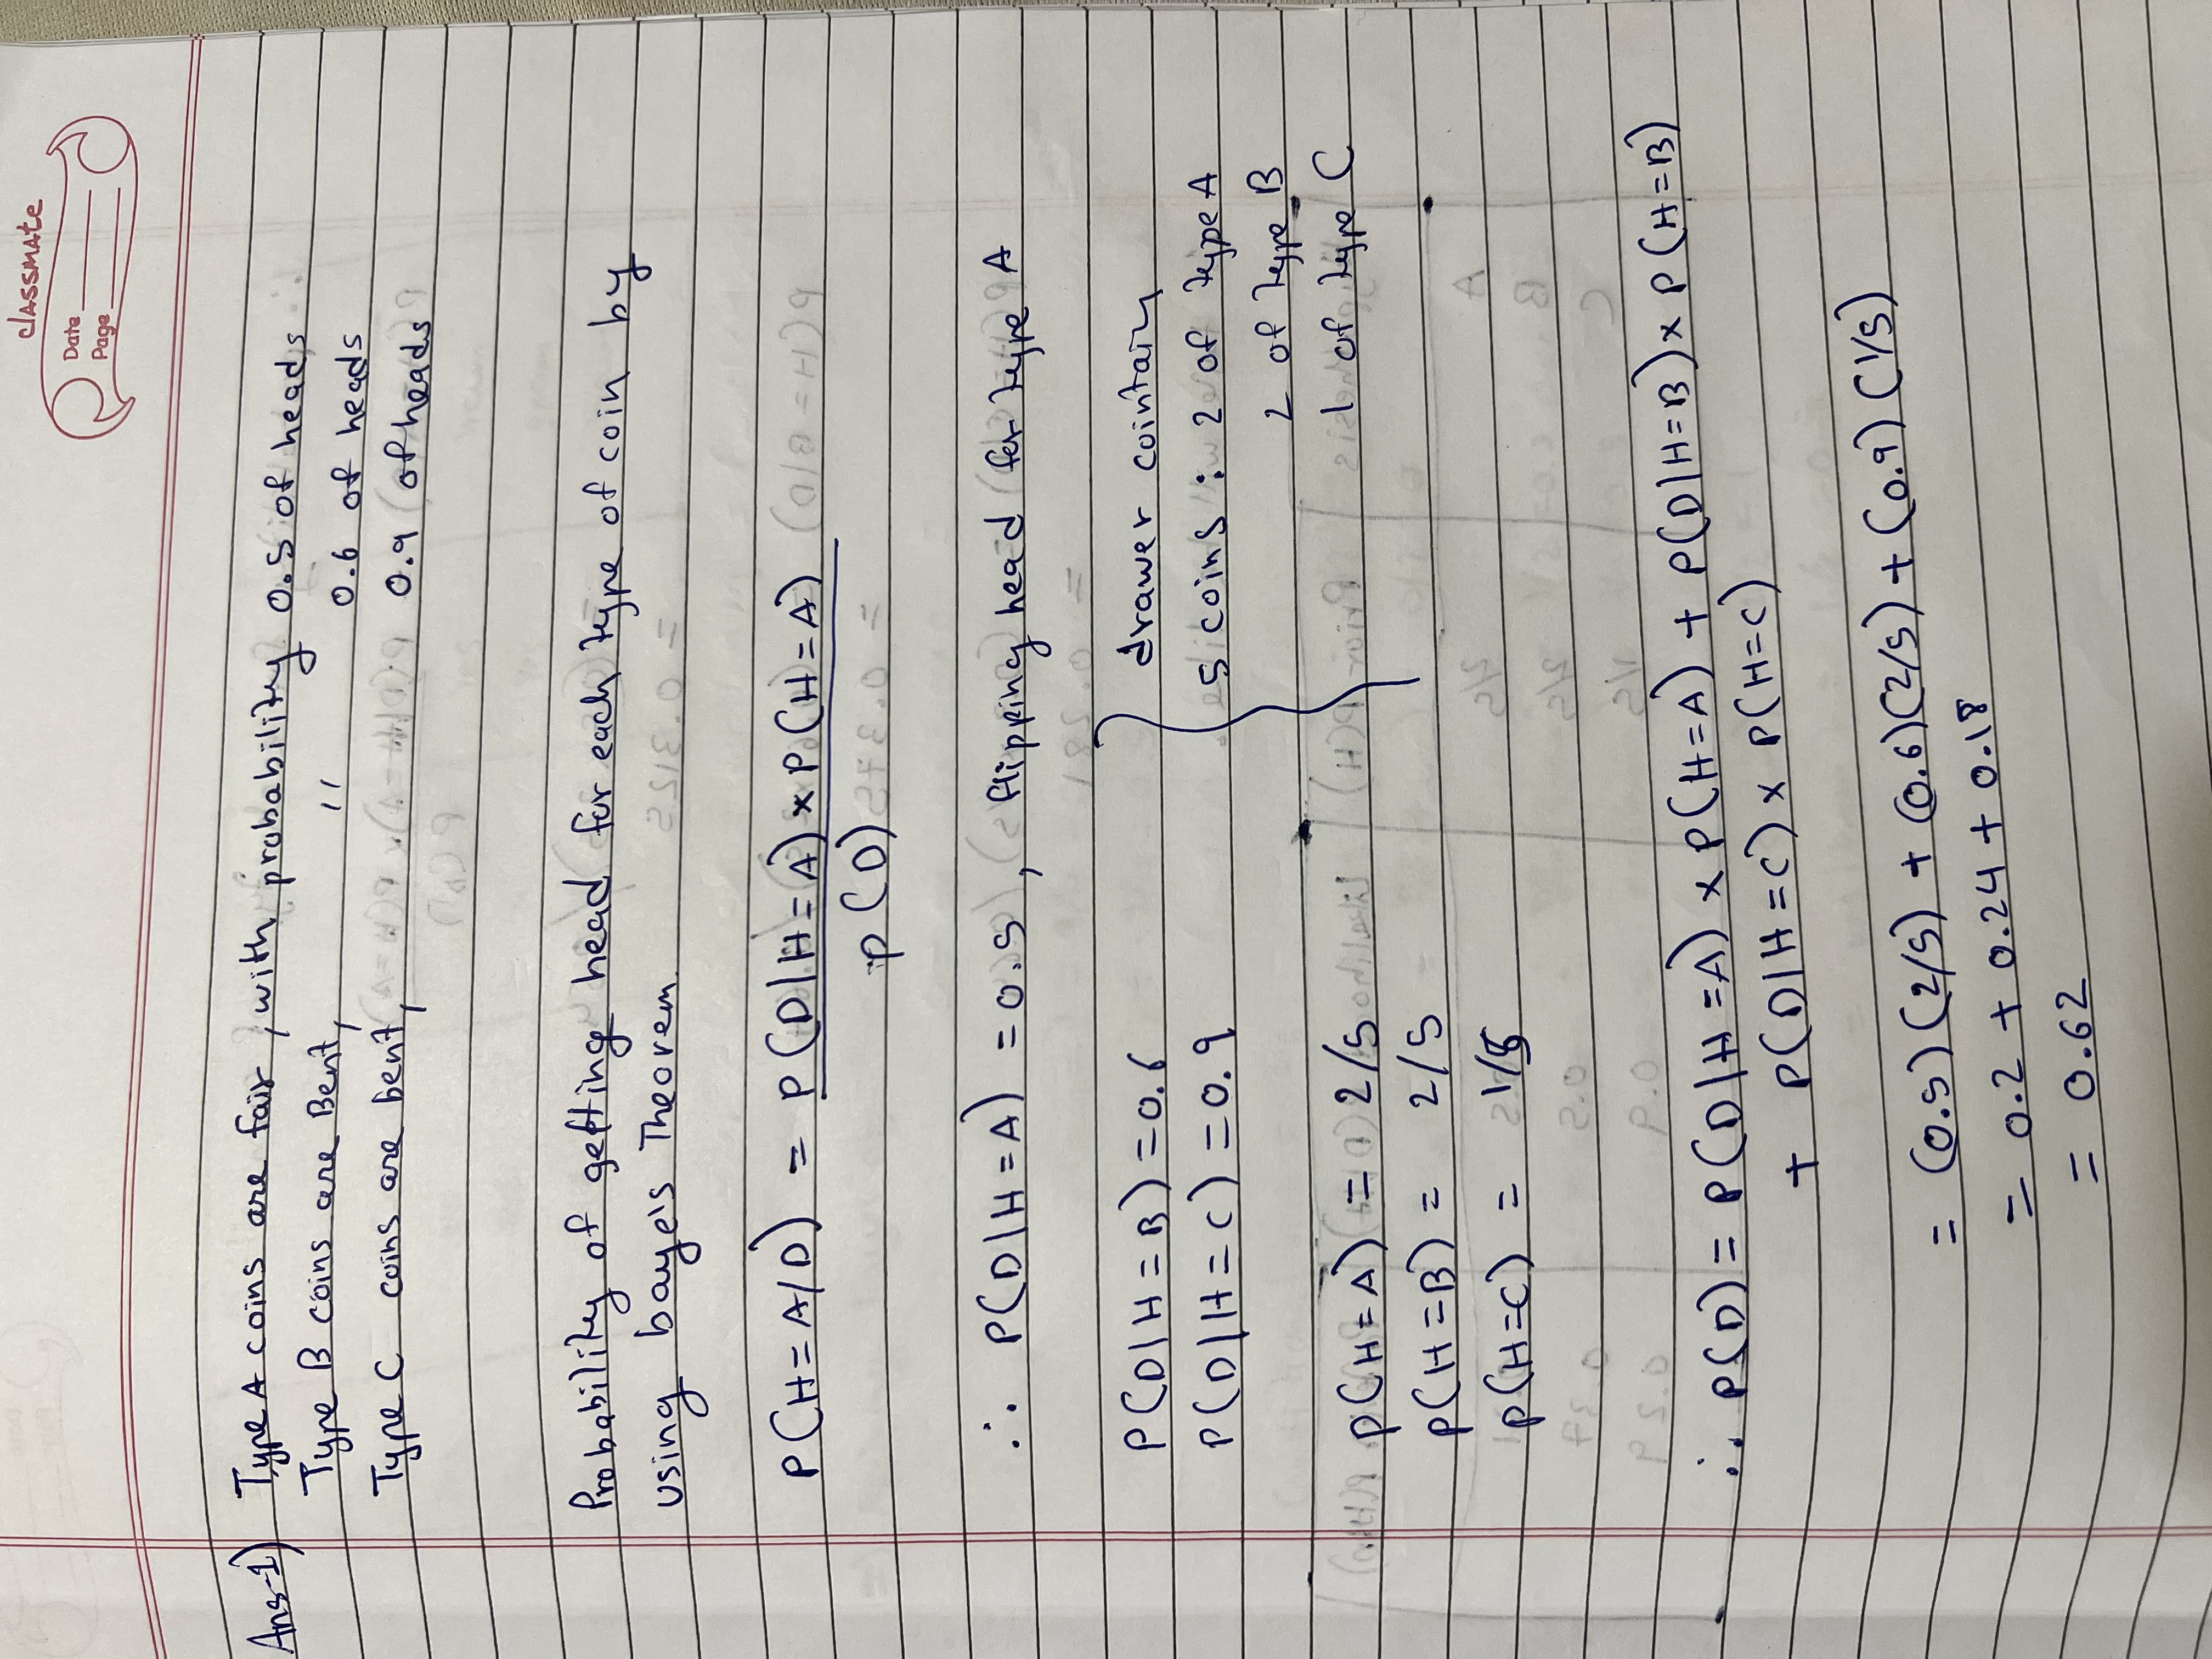 classmate
Date
Page
Ans-1) Type A coins are fair, with probability 0.5 of heads
Type B coins are Bent, " 0.6 of heads
Type C coins are bent, 0.9 of heads
Probability of getting head for each type of coin by
using baye's Theorem.
P(H=A/D) = P(D|H=A) × P(H=A)
P(D)
∴ P(D|H=A) = 0.5, flipping head for type A
P(D|H=B) = 0.6
P(D|H=C) = 0.9
drawer cointain
5 coins : 2 of type A
2 of type B
1 of type C
P(H=A) = 2/5
P(H=B) = 2/5
P(H=C) = 1/5
∴ P(D) = P(D|H=A) × P(H=A) + P(D|H=B) × P(H=B)
+ P(D|H=C) × P(H=C)
= (0.5)(2/5) + (0.6)(2/5) + (0.9)(1/5)
= 0.2 + 0.24 + 0.18
= 0.62